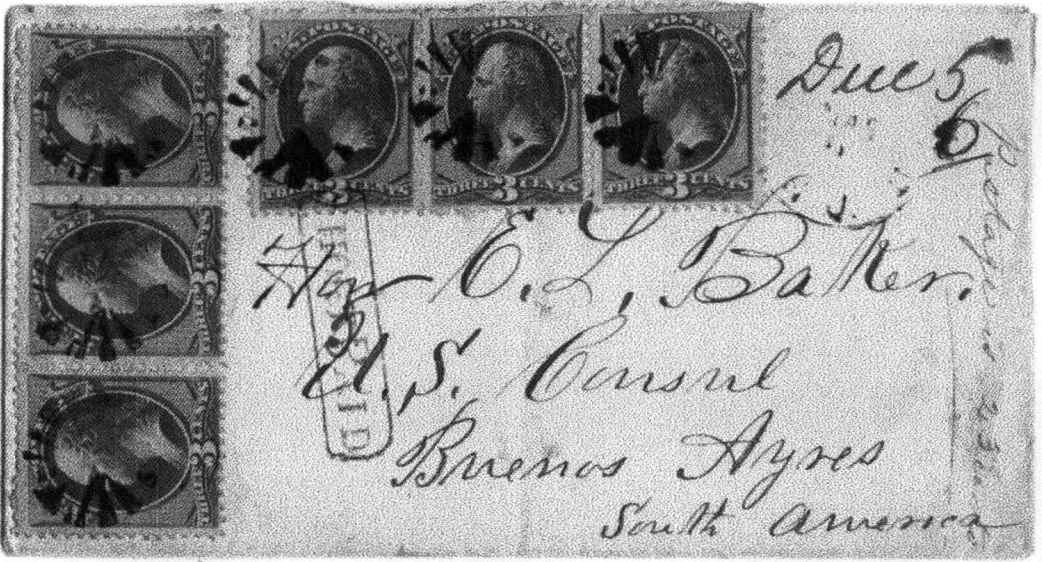 U.S. POSTAGE
THREE 3 CENTS
U.S. POSTAGE
THREE 3 CENTS
U.S. POSTAGE
THREE 3 CENTS
Due 5
6
Hon E. L. Baker.
U. S. Consul
Buenos Ayres
South America
Postage is 23
PAID